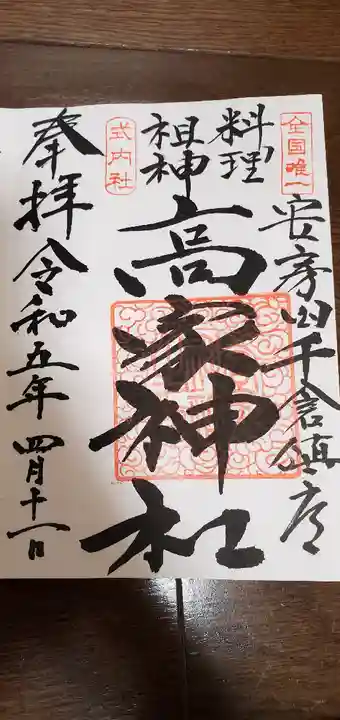 全国唯一
安房国千倉鎮座
料理
祖神
式内社
高家神社
奉拝
令和五年
四月十一日